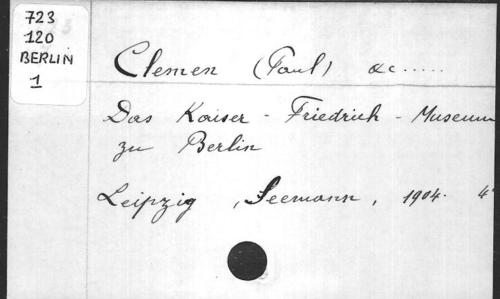 723
120
BERLIN
1
Clemen (Paul) &c.....
Das Kaiser - Friedrich - Museum
zu Berlin
Leipzig, Seemann, 1904. 4°